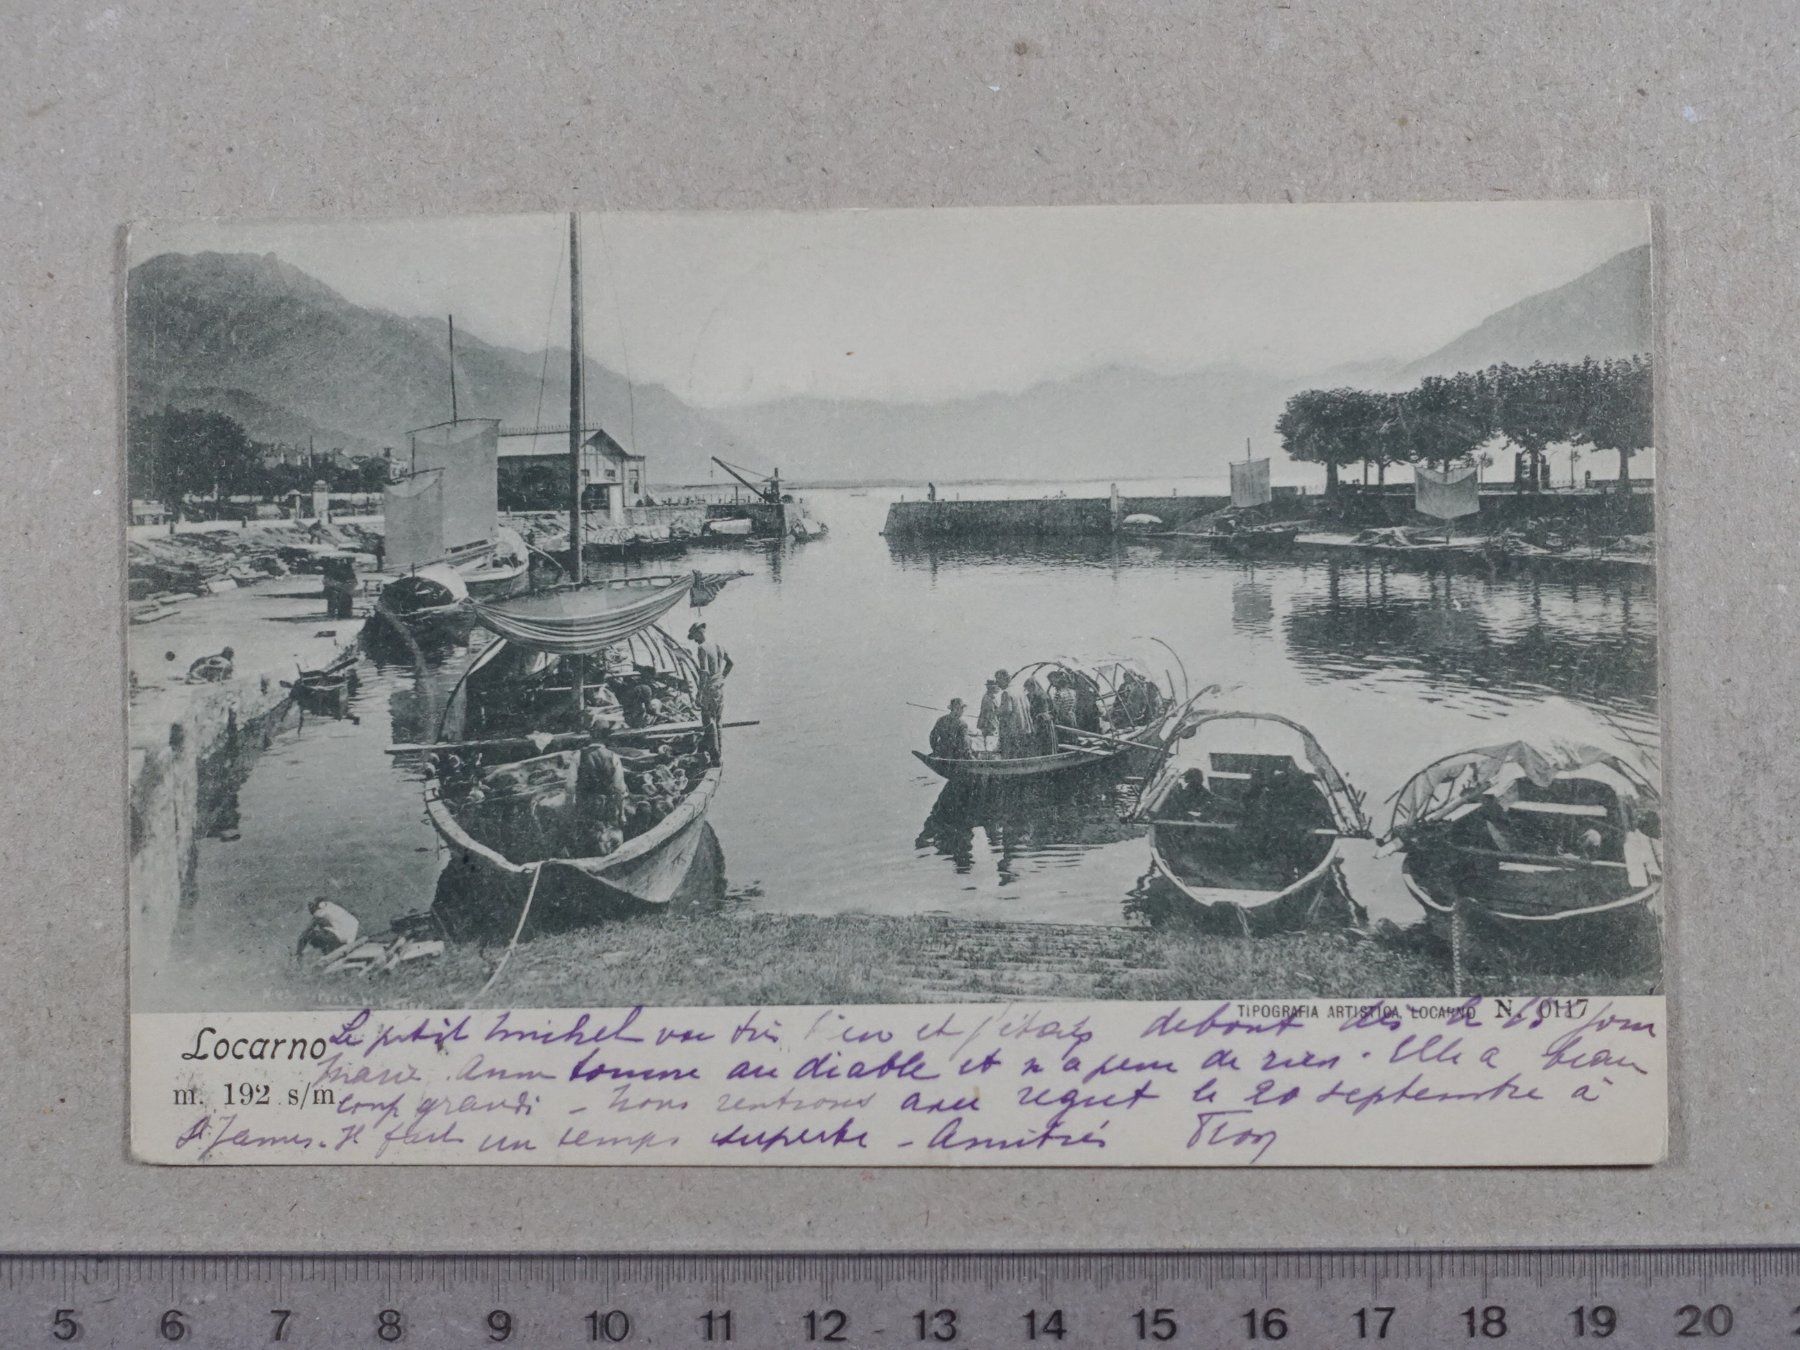 TIPOGRAFIA ARTISTICA, LOCARNO N. 0117
Locarno
m. 192 s/m.
Le petit michel va très bien et j'étais debout dès le 15e jour
Marie Anne tourne au diable et n'a peur de rien. Elle a beau
coup grandi – Nous rentrons avec regret le 20 septembre à
St James. Il fait un temps superbe – Amitiés
5 6 7 8 9 10 11 12 13 14 15 16 17 18 19 20